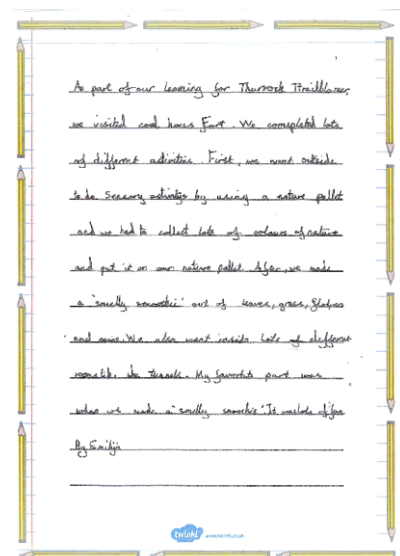 As part of our learning for Thurrock Trailblazer,
we visited coal house Fort. We completed lots
of different activities. First, we went outside
to do sensory activitys by using a nature pallet
and we had to collect lots of colours of nature
and put it on our nature pallet. After, we made
a "smelly smoothie" out of leaves, grass,
and We also went inside lots of different
the tunnels. My favourite part was
when we made a "smelly smoothie". It was lots of fun
By Emilija
twinkl www.twinkl.co.uk